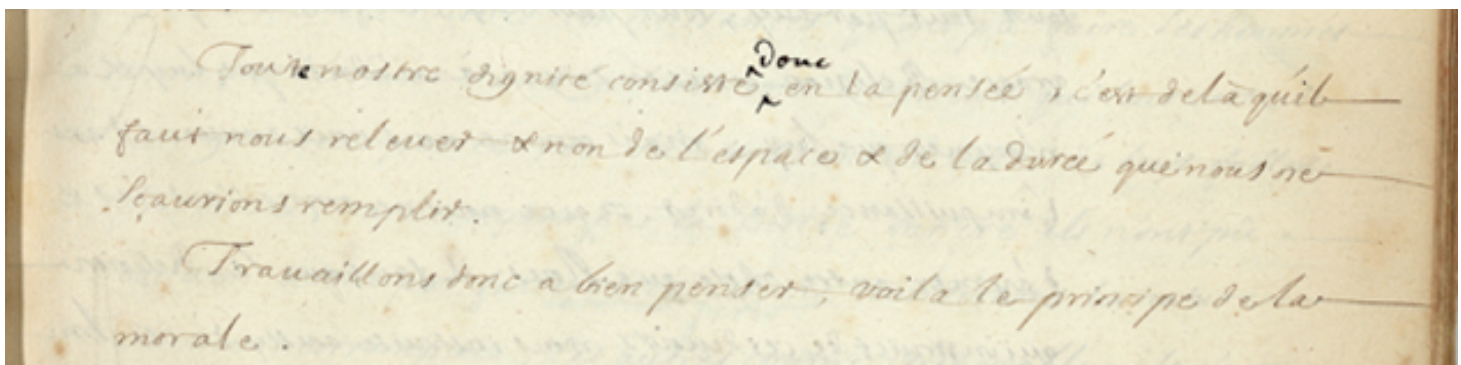 Toute nostre dignité consiste donc en la pensée, c'est delà qu'il
faut nous releuer & non de l'espace & de la durée que nous ne
sçaurions remplir.
Trauaillons donc a bien penser, voila le principe de la
morale.